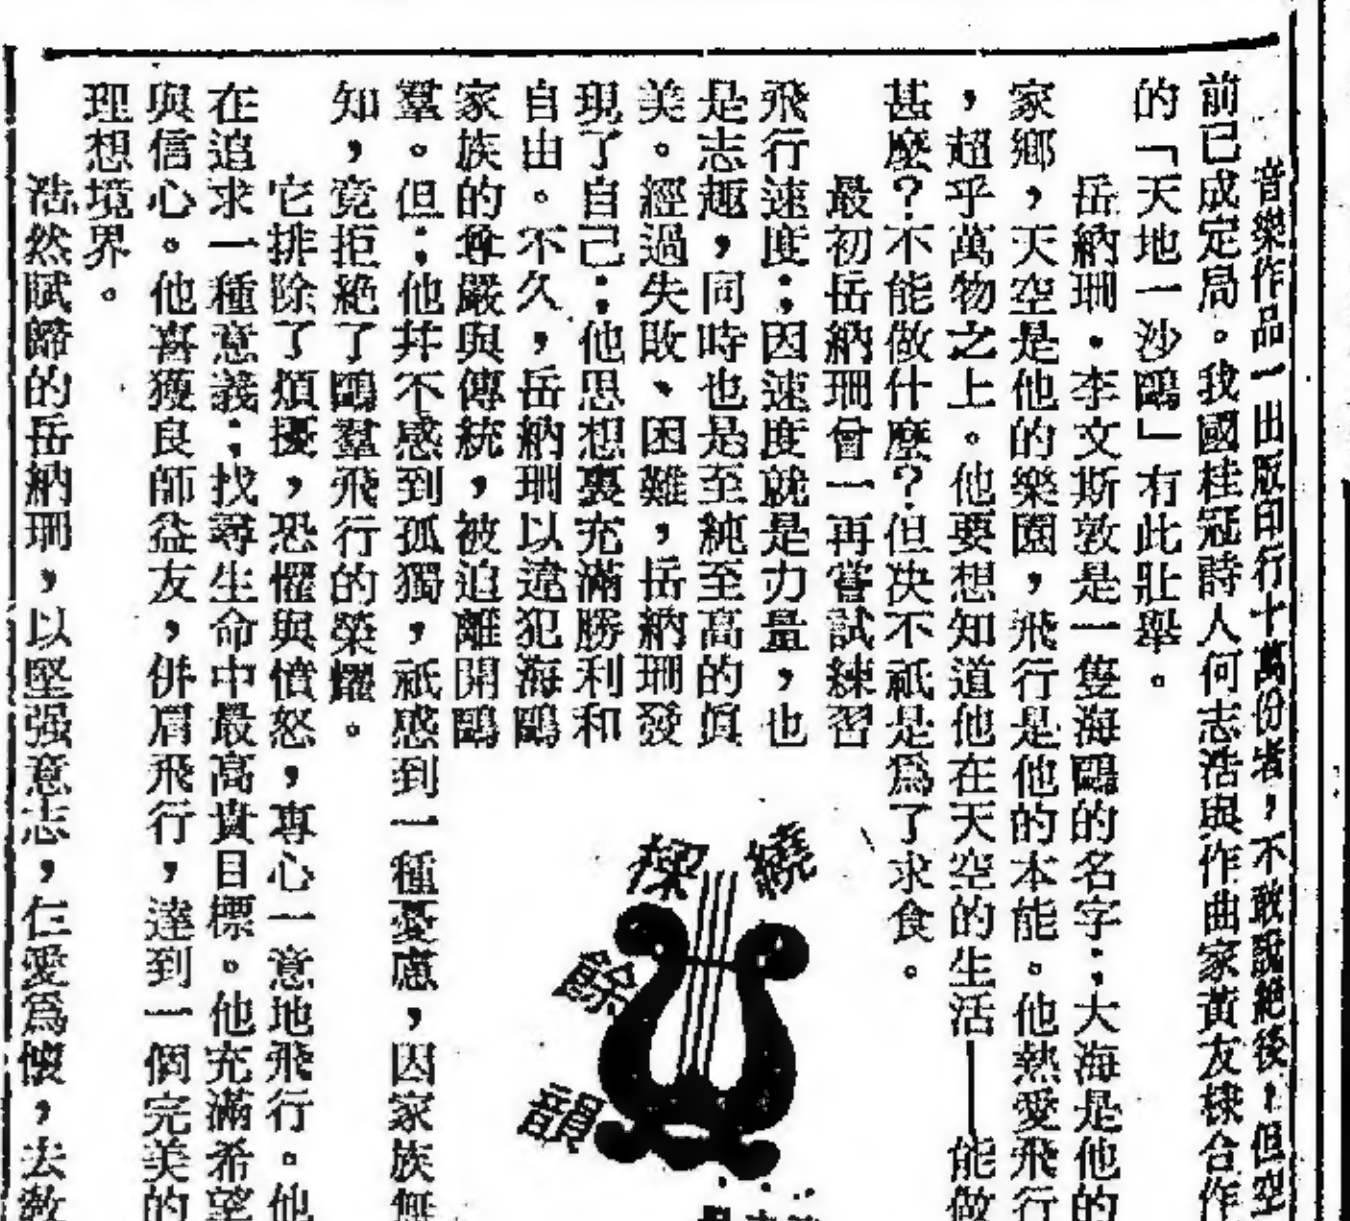 音樂作品一出版印行十萬份者，不敢說絕後，但空
前已成定局。我國桂冠詩人何志浩與作曲家黃友棣合作
的「天地一沙鷗」有此壯舉。
岳納珊．李文斯敦是一隻海鷗的名字；大海是他的
家鄉，天空是他的樂園，飛行是他的本能。他熱愛飛行
，超乎萬物之上。他要想知道他在天空的生活——能做
甚麼？不能做什麼？但决不祇是爲了求食。
最初岳納珊曾一再嘗試練習
飛行速度；因速度就是力量，也
是志趣，同時也是至純至高的眞
美。經過失敗、困難，岳納珊發
現了自己；他思想裏充滿勝利和
自由。不久，岳納珊以違犯海鷗
家族的尊嚴與傳統，被迫離開鷗
羣。但；他幷不感到孤獨，祇感到一種憂慮，因家族無
知，竟拒絕了鷗羣飛行的榮耀。
它排除了煩擾，恐懼與憤怒，專心一意地飛行。他
在追求一種意義；找尋生命中最高貴目標。他充滿希望
與信心。他喜獲良師益友，併肩飛行，達到一個完美的
理想境界。
浩然賦歸的岳納珊，以堅强意志，仁愛爲懷，去敎
繞樑餘韻